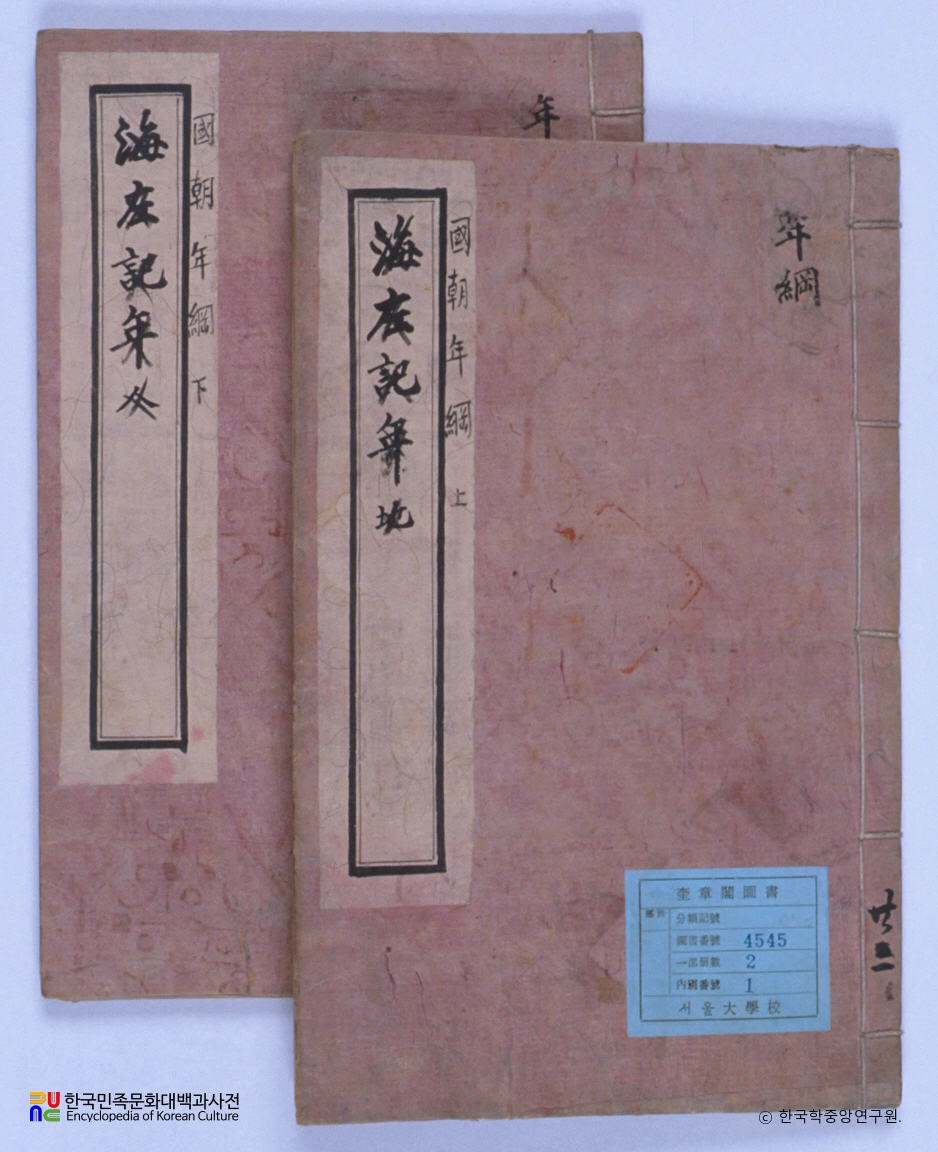 國朝年綱 下
海左記年
年
國朝年綱 上
海左記年 地
年綱
共三
奎章閣圖書
分類記號
圖書番號 4545
一部冊數 2
內別番號 1
서울大學校
한국민족문화대백과사전
Encyclopedia of Korean Culture
© 한국학중앙연구원.